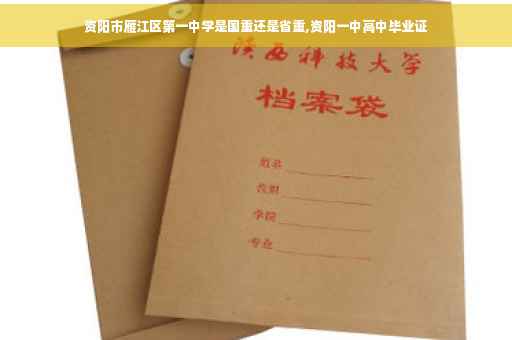 资阳市雁江区第一中学是国重还是省重,资阳一中高中毕业证
陕西科技大学
档案袋
学院
专业